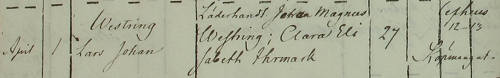 Westring
April 1 Lars Johan
Läderhandl. Johan Magnus
Westring; Clara Eli
sabeth Thrmark
27
Cepheus
12-13
Köpmangat.